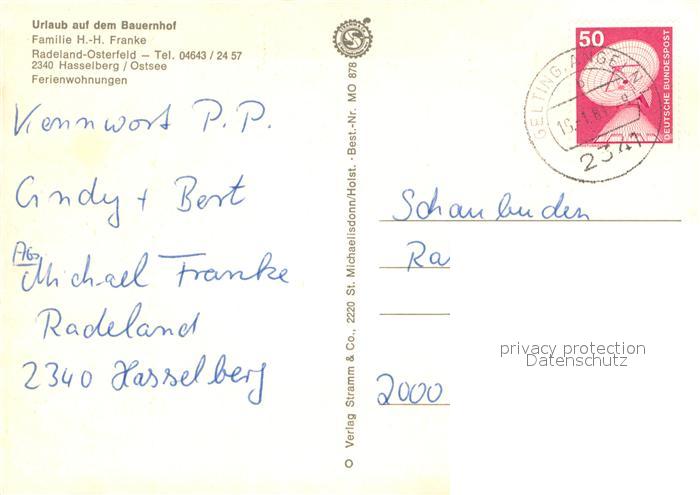 Urlaub auf dem Bauernhof
Familie H.-H. Franke
Radeland-Osterfeld — Tel. 04643 / 24 57
2340 Hasselberg / Ostsee
Ferienwohnungen
Kennwort P.P.
Cindy + Bert
Abs.
Michael Franke
Radeland
2340 Hasselberg
Verlag Stramm & Co., 2220 St. Michaelisdonn/Holst. · Best.-Nr. MO 878
50
DEUTSCHE BUNDESPOST
GELTING, ANGELN
2341
Schaubuden
Ra
2000
privacy protection
Datenschutz